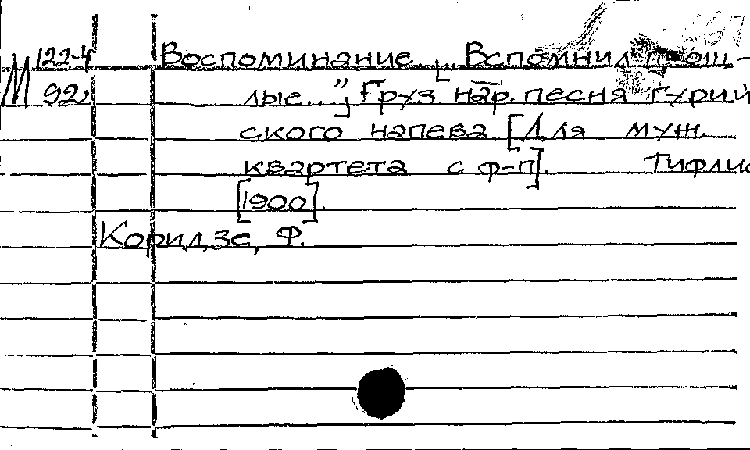 М 122-4
92,
Воспоминание. „Вспомнил прош-
лые..."; Груз. нар. песня гурий
ского напева [Для муж.
квартета с ф-п]. Тифлис
[1900].
Коридзе, Ф.